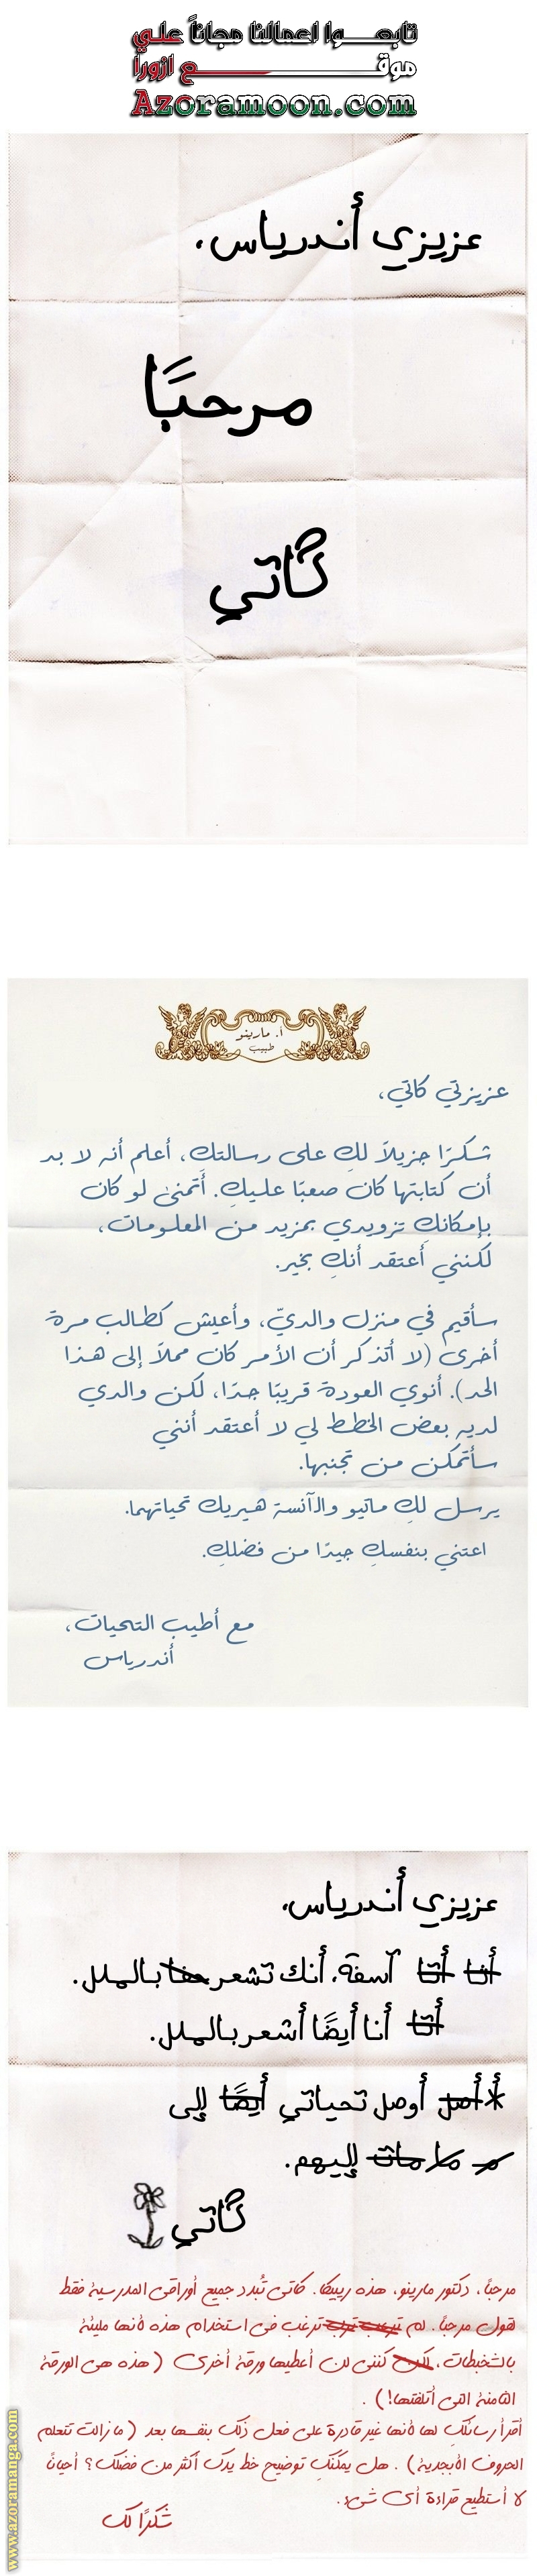 تابعـــــوا اعمالنا مجاناً علـي
موقـــــــــــــع ازورا
Azoramoon.com
عزيزي أندرياس،
مرحبًا
كاتي
أ. مارينو
طبيب
عزيزتي كاتي،
شكرًا جزيلاً لكِ على رسالتكِ، أعلم أنه لا بد
أن كتابتها كان صعبًا عليكِ. أتمنى لو كان
بإمكانكِ تزويدي بمزيد من المعلومات،
لكنني أعتقد أنكِ بخير.
سأقيم في منزل والديّ، وأعيش كطالب مرة
أخرى (لا أتذكر أن الأمر كان مملاً إلى هذا
الحد). أنوي العودة قريبًا جدًا، لكن والدي
لديه بعض الخطط لي لا أعتقد أنني
سأتمكن من تجنبها.
يرسل لكِ ماتيو والآنسة هيريك تحياتهما.
اعتني بنفسكِ جيدًا من فضلكِ.
مع أطيب التحيات،
أندرياس
عزيزي أندرياس،
أنا أنا آسفة، أنك تشعر حقا بالملل.
أنا أنا أيضًا أشعر بالملل.
أوصل تحياتي أيضًا إلى
م ما مات إليهم.
كاتي
مرحبًا، دكتور مارينو، هذه ريبيكا. كاتي تُبدد جميع أوراقي المدرسية فقط
لقول مرحبًا. لم ترغب في استخدام هذه لأنها مليئة
بالشخبطات، لكنني لن أعطيها ورقة أخرى (هذه هي الورقة
الثامنة التي أتلفتها!).
أقرأ رسائلك لها لأنها غير قادرة على فعل ذلك بنفسها بعد (ما زالت تتعلم
الحروف الأبجدية). هل يمكنك توضيح خط يدك أكثر من فضلك؟ أحيانًا
لا أستطيع قراءة أي شيء.
شكرًا لك
www.azoramanga.com